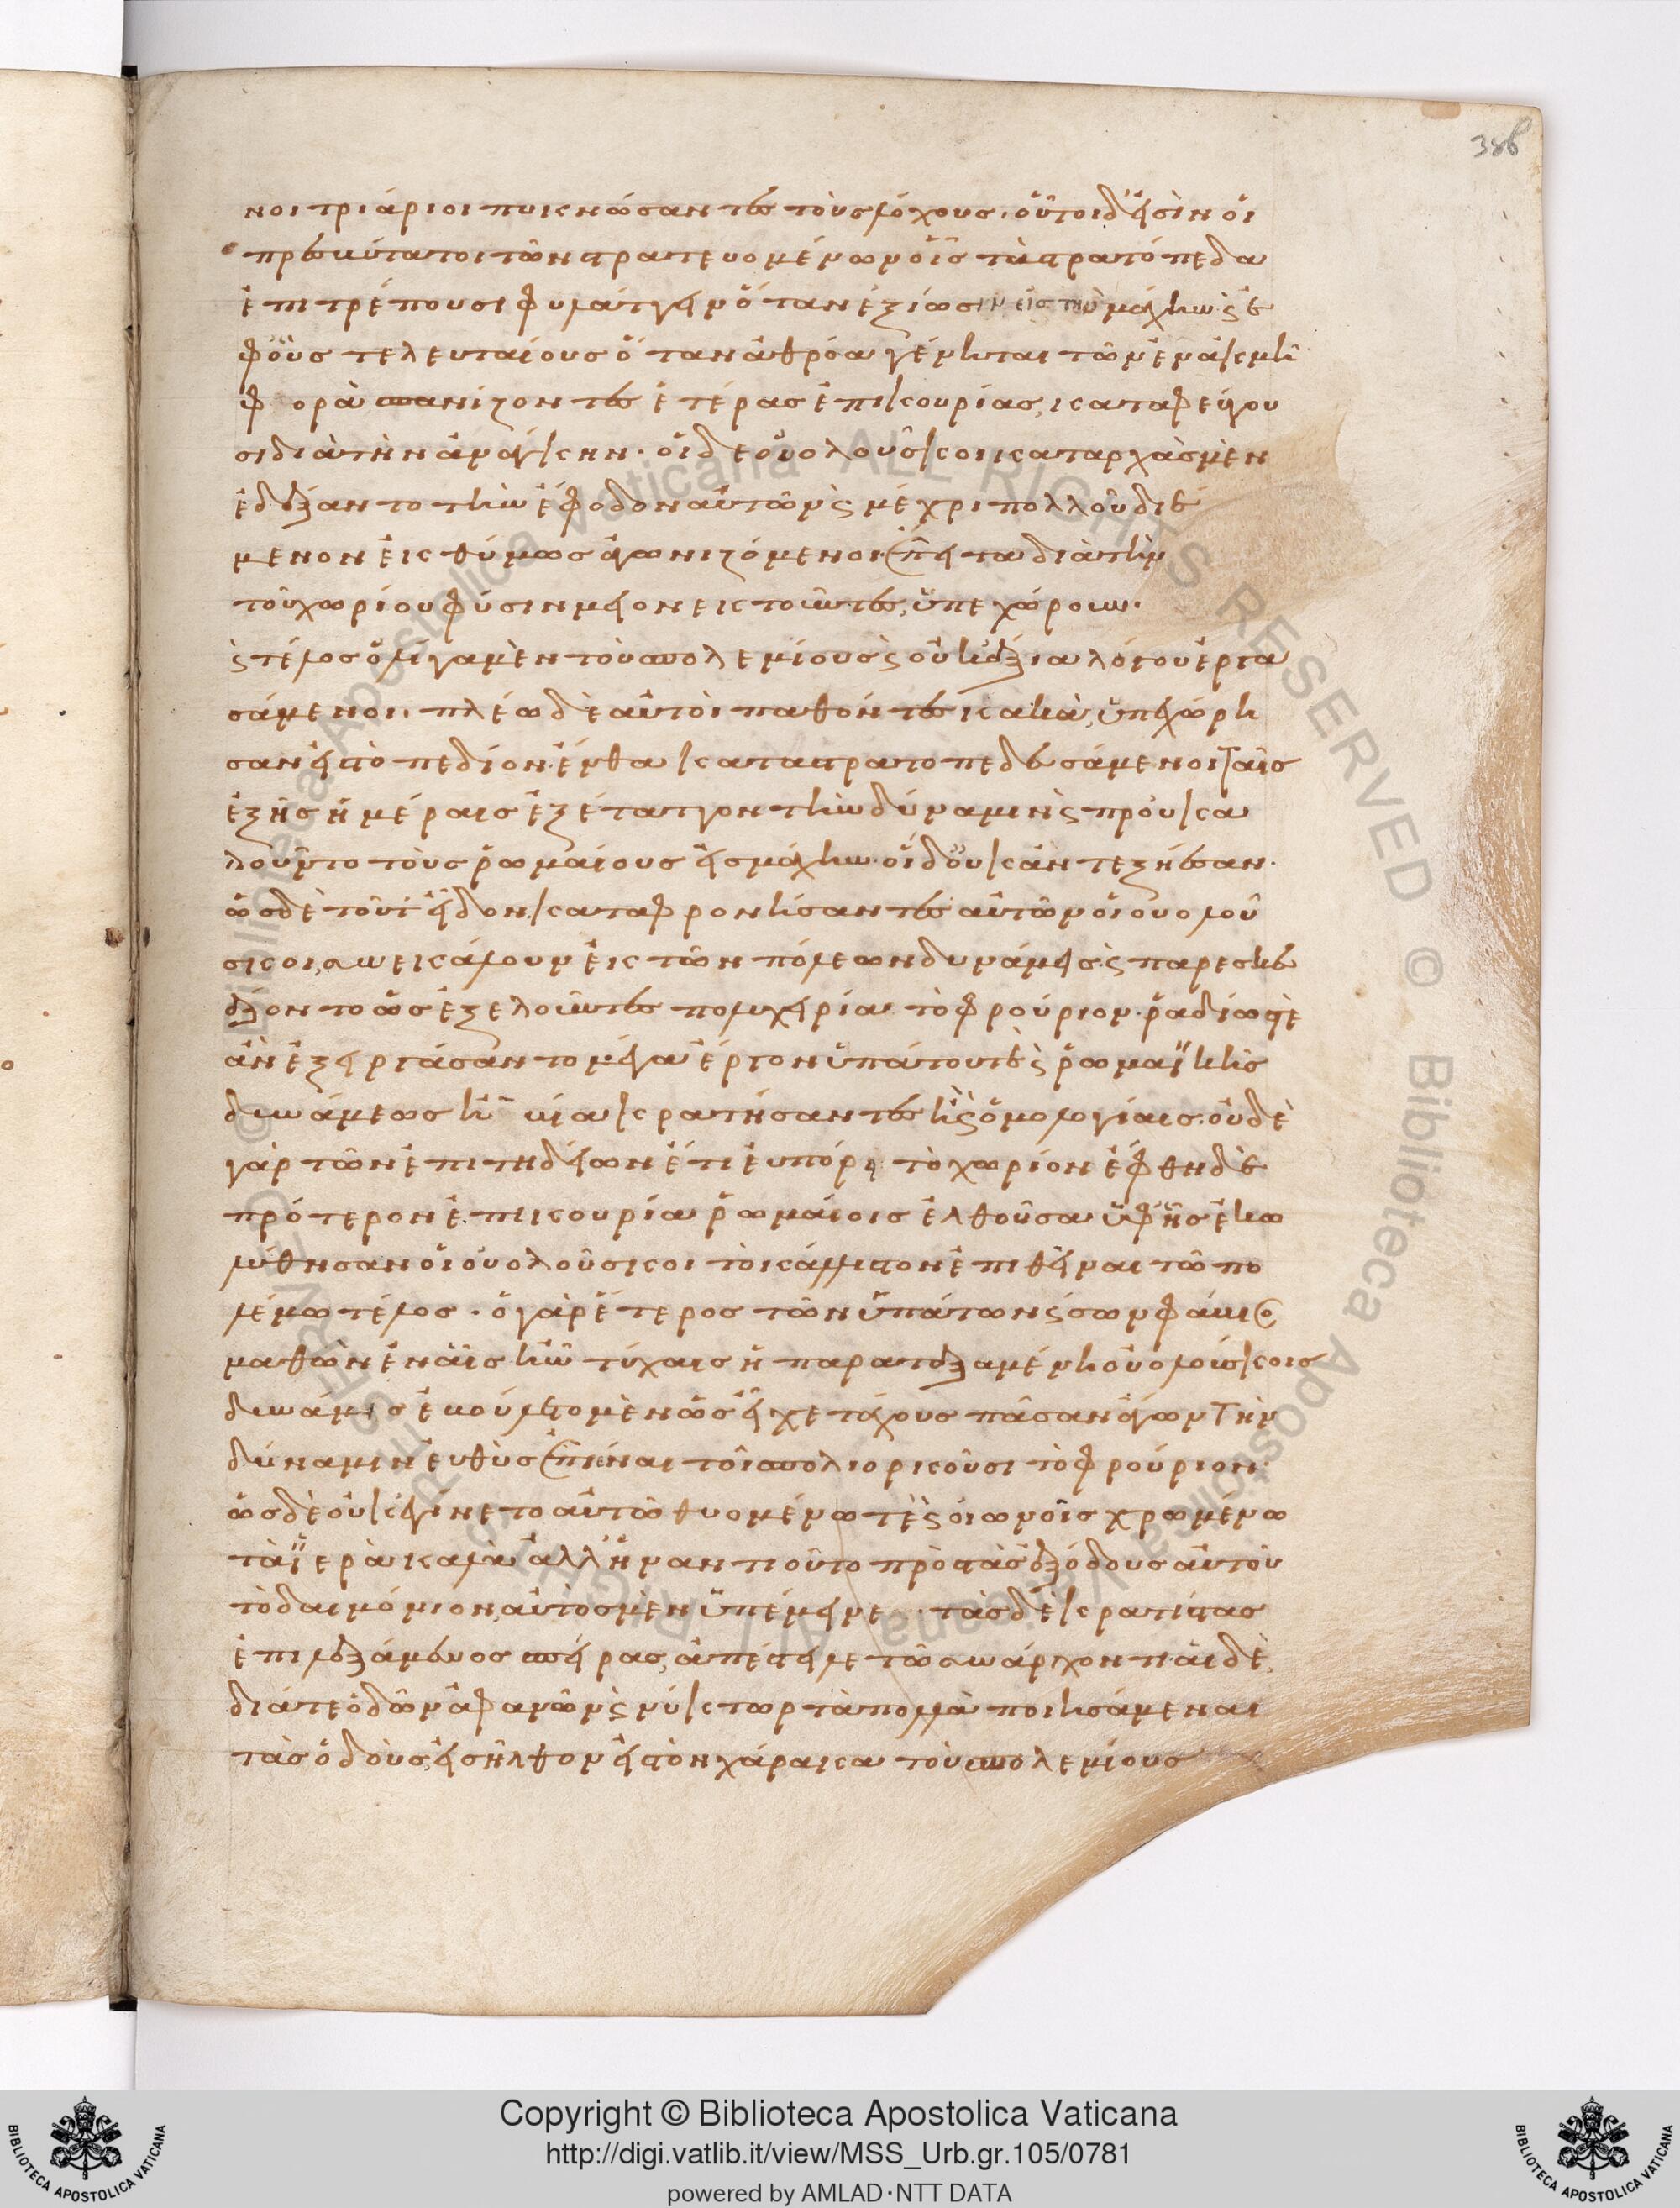 386
νοι τριάριοι πυκνώσαντες τοὺς λόχους. οὗτοι δ' εἰσὶν οἱ
πρεσβύτατοι τῶν στρατευομένων οἷς τὰ στρατόπεδα
ἐπιτρέπουσι φυλάττειν ὅταν ἐξίωσιν εἰς τὴν μάχην. καὶ ἐ
φ' οὓς τελευταίους ὅταν ἀθρόα γένηται τῶν ἐν ἀκμῆ
φθορὰ σπανίζοντες ἑτέρας ἐπικουρίας, καταφεύγου
σι διὰ τὴν ἀνάγκην. οἱ δὲ οὐολοῦσκοι καταρχὰς μὲν
ἐδέξαντο τὴν ἔφοδον αὐτῶν καὶ μέχρι πολλοῦ διέ
μενον ἐκθύμως ἀγωνιζόμενοι. ἔπειτα διὰ τὴν
τοῦ χωρίου φύσιν μειονεκτοῦντες, ὑπεχώρουν.
καὶ τέλος ὀλίγα μὲν τοὺς πολεμίους καὶ οὐκ ἄξια λόγου ἐργα
σάμενοι, πλείω δὲ αὐτοὶ παθόντες κακὰ, ὑπεχώρη
σαν εἰς τὸ πεδίον. ἔνθα καταστρατοπεδευσάμενοι ταῖς
ἑξῆς ἡμέραις ἐξέταττον τὴν δύναμιν καὶ προὐκα
λοῦντο τοὺς ῥωμαίους εἰς μάχην. οἱ δ' οὐκ ἀντεξήεσαν.
ὡς δὲ τοῦτ' εἶδον, καταφρονήσαντες αὐτῶν οἱ οὐολοῦ
σκοι, συνεκάλουν ἐκ τῶν πόλεων δυνάμεις. καὶ παρεσκευ
άζοντο ὡς ἐξελοῦντες πολυχειρία τὸ φρούριον. ῥαδίως τε
ἂν ἐξειργάσαντο μέγα ἔργον ὑπάτου τε καὶ ῥωμαϊκῆς
δυνάμεως ἢ βία κρατήσαντες ἢ καὶ ὁμολογίαις. οὐδὲ
γὰρ τῶν ἐπιτηδείων ἔτι εὐπόρει τὸ χωρίον ἔφθη δὲ
πρότερον ἐπικουρία ῥωμαίοις ἐλθοῦσα ὑφ' ἧς ἐκω
λύθησαν οἱ οὐολοῦσκοι τὸ κάλλιστον ἐπιθεῖναι τῶ πο
λέμω τέλος. ὁ γὰρ ἕτερος τῶν ὑπάτων καίσων φάβιος
μαθὼν ἐν αἷς ἦν τύχαις ἡ παραταξαμένη οὐολούσκοις
δύναμις ἐβούλετο μὲν ὡς εἶχε τάχους πᾶσαν ἄγων τὴν
δύναμιν εὐθὺς ἐπιέναι τοῖς πολιορκοῦσι τὸ φρούριον.
ὡς δὲ οὐκ ἐγίνετο αὐτῶ θυομένω τε καὶ οἰωνοῖς χρωμένω
τὰ ἱερὰ καλὰ ἀλλ' ἠναντιοῦτο πρὸς τὰς ἐξόδους αὐτοῦ
τὸ δαιμόνιον, αὐτὸς μὲν ὑπέμεινε. τὰς δὲ κρατίστας
ἐπιλεξάμενος σπείρας, ἀπέστειλε τῶ συνάρχοντι. αἱ δὲ,
διά τε ὁδῶν ἀφανῶν καὶ νύκτωρ τὰ πολλὰ ποιησάμεναι
τὰς ὁδοὺς, εἰσῆλθον εἰς τὸν χάρακα τοὺς πολεμίους
Copyright © Biblioteca Apostolica Vaticana
http://digi.vatlib.it/view/MSS_Urb.gr.105/0781
powered by AMLAD·NTT DATA
BIBLIOTECA APOSTOLICA VATICANA
BIBLIOTECA APOSTOLICA VATICANA
© Biblioteca Apostolica Vaticana ALL RIGHTS RESERVED